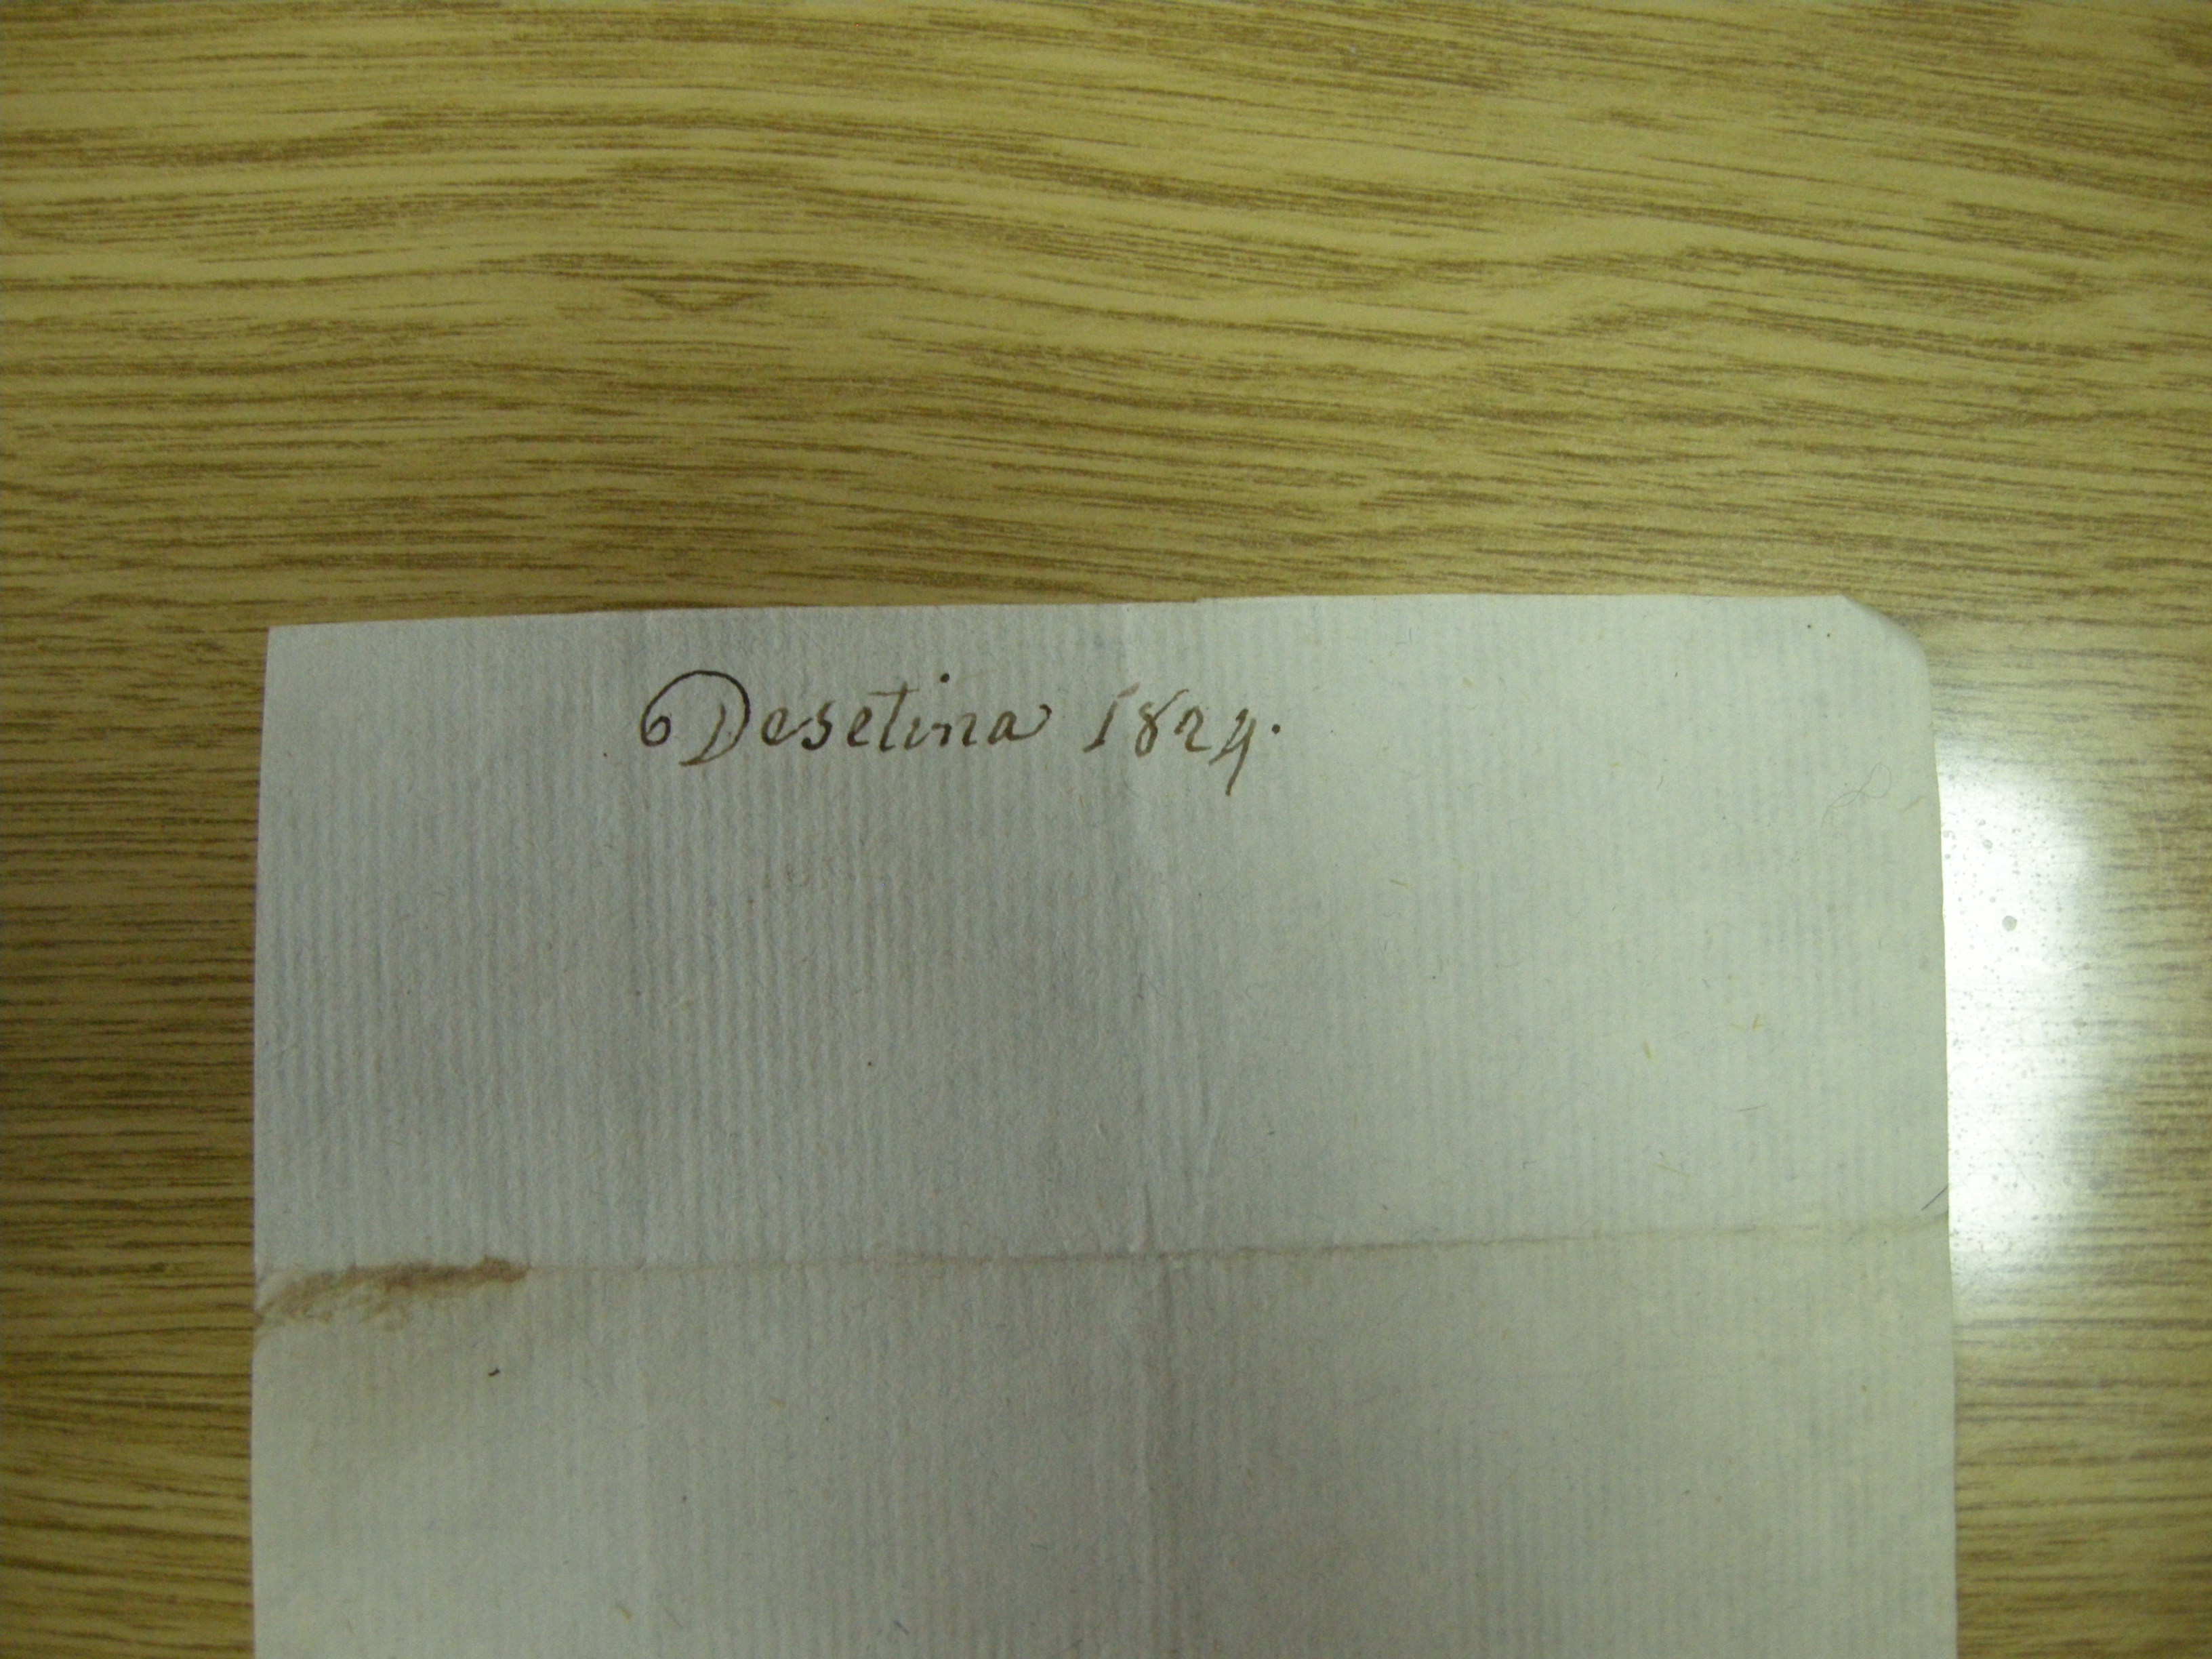 Desetina 1824.